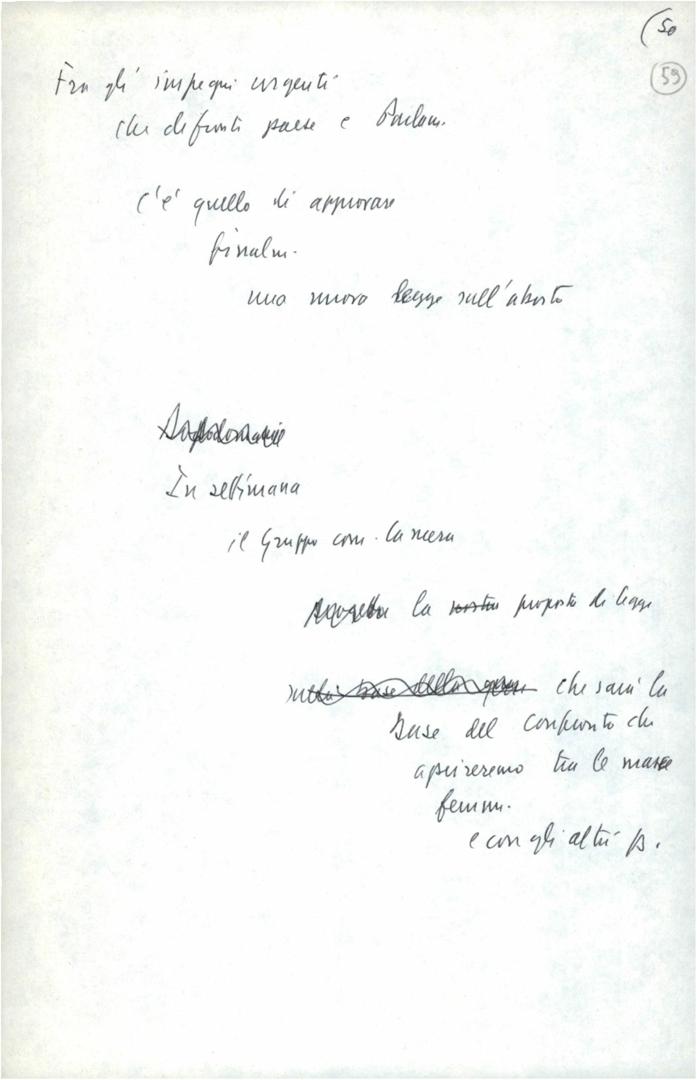 (50
59
Fra gli impegni urgenti
che di fronti paese e Parlam.
c'è quello di approvare
finalm.
una nuova legge sull'aborto
In settimana
il Gruppo com. Camera
la nostra proposta di legge
sulla base della che sarà la
base del confronto che
apriremo tra le masse
femm.
e con gli altri p.